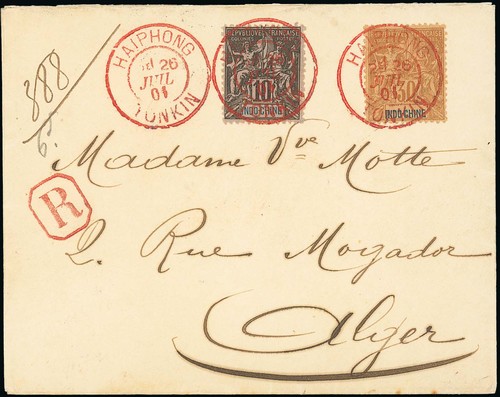 HAIPHONG
26
JUIL
01
TONKIN
RÉPUBLIQUE FRANÇAISE
COLONIES POSTES
10
INDO-CHINE
HAIPHONG
26
JUIL
01
TONKIN
30
INDO-CHINE
388
R
Madame Vve Motte
2. Rue Mogador
Alger